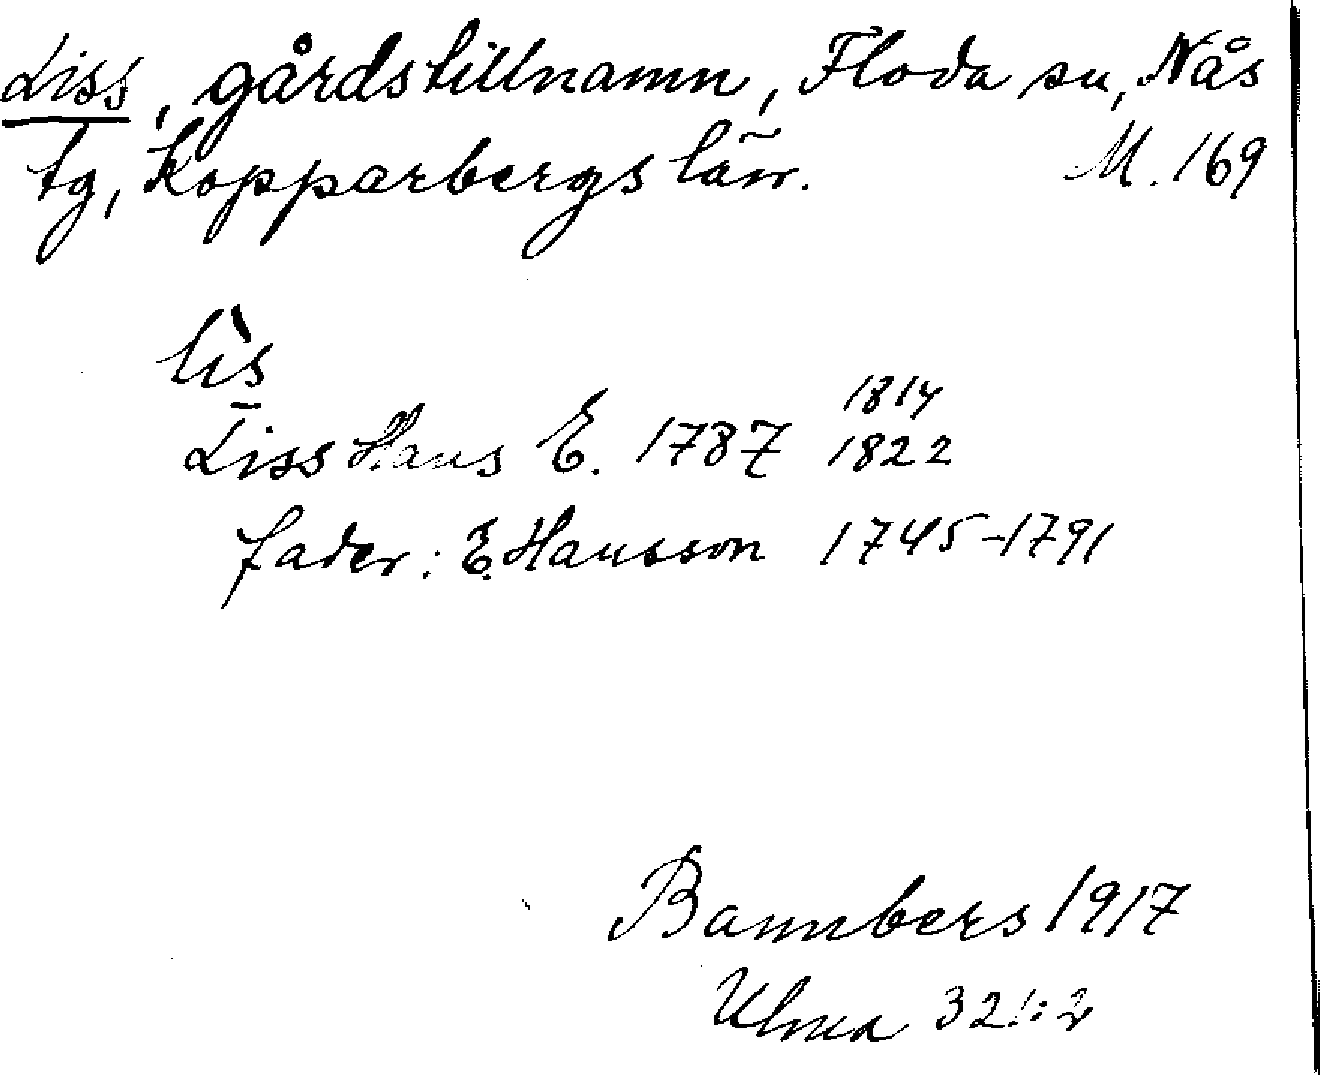 Liss, gårdstillnamn, Floda sn, Nås
tg, Kopparbergs län. M. 169
lìs
Liss Hans E. 1787 1814
1822
fader: E. Hansson 1745-1791
Bannbers 1917
Ulma 321:2